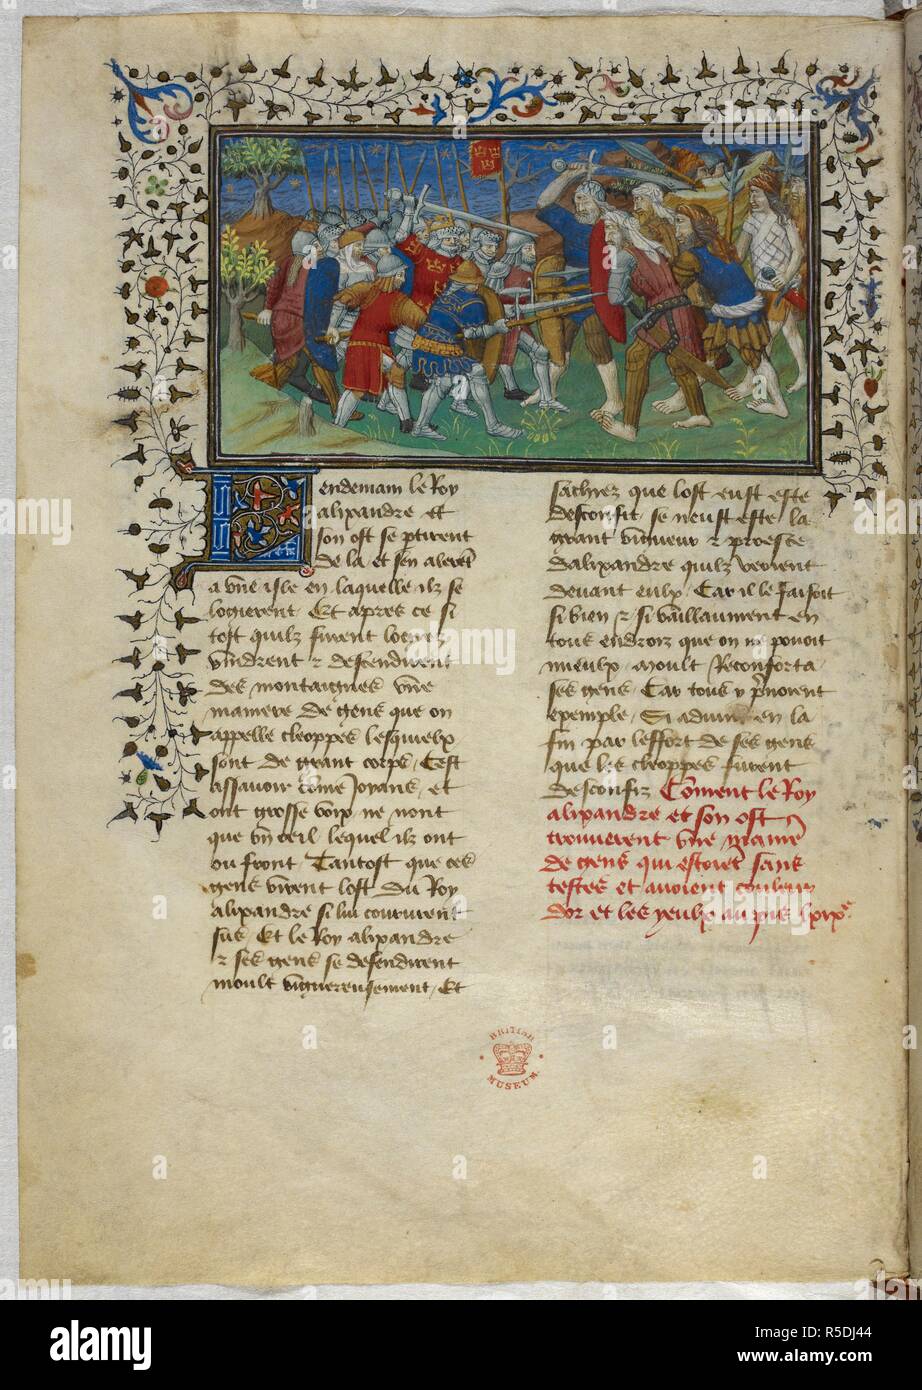 Lendemain le Roy
alixandre et
son ost se ptirent
de la et sen alerēt
a vne isle en laquelle ilz se
logierent Et apres ce si
tost quilz furent logiez
vindrent ⁊ descendirent
des montaignes vne
maniere de gens que on
appelle cleoppes lesquielx
sont de grant corps Cest
assauoir cōme joyans et
ont grosse voix ne nont
que vn oeil lequel ilz ont
ou front Tantost que ces
gens virent lost du Roy
alixandre si lui coururent
sus Et le Roy alixandre
⁊ ses gens se defendirent
moult viguereusement Et
sachiez que lost eust este
desconfit se neust este la
grant vigueur ⁊ proesce
dalixandre quilz veoient
deuant eulx Car il le faisoit
si bien ⁊ si vaillaument en
tous endroiz que on ne pouoit
mieulx moult Reconforta
ses gens Car tous y p̄noient
exemple Si aduint en la
fin par leffort de ses gens
que les cleoppes furent
desconfiz Cōment le Roy
alixandre et son ost
trouuerent vne manie
de gens qui estoiēt sans
testes et auoient couleur
dor et les yeulx au pis lxixe
BRITISH MUSEUM
alamy
Image ID: R5DJ44
www.alamy.com